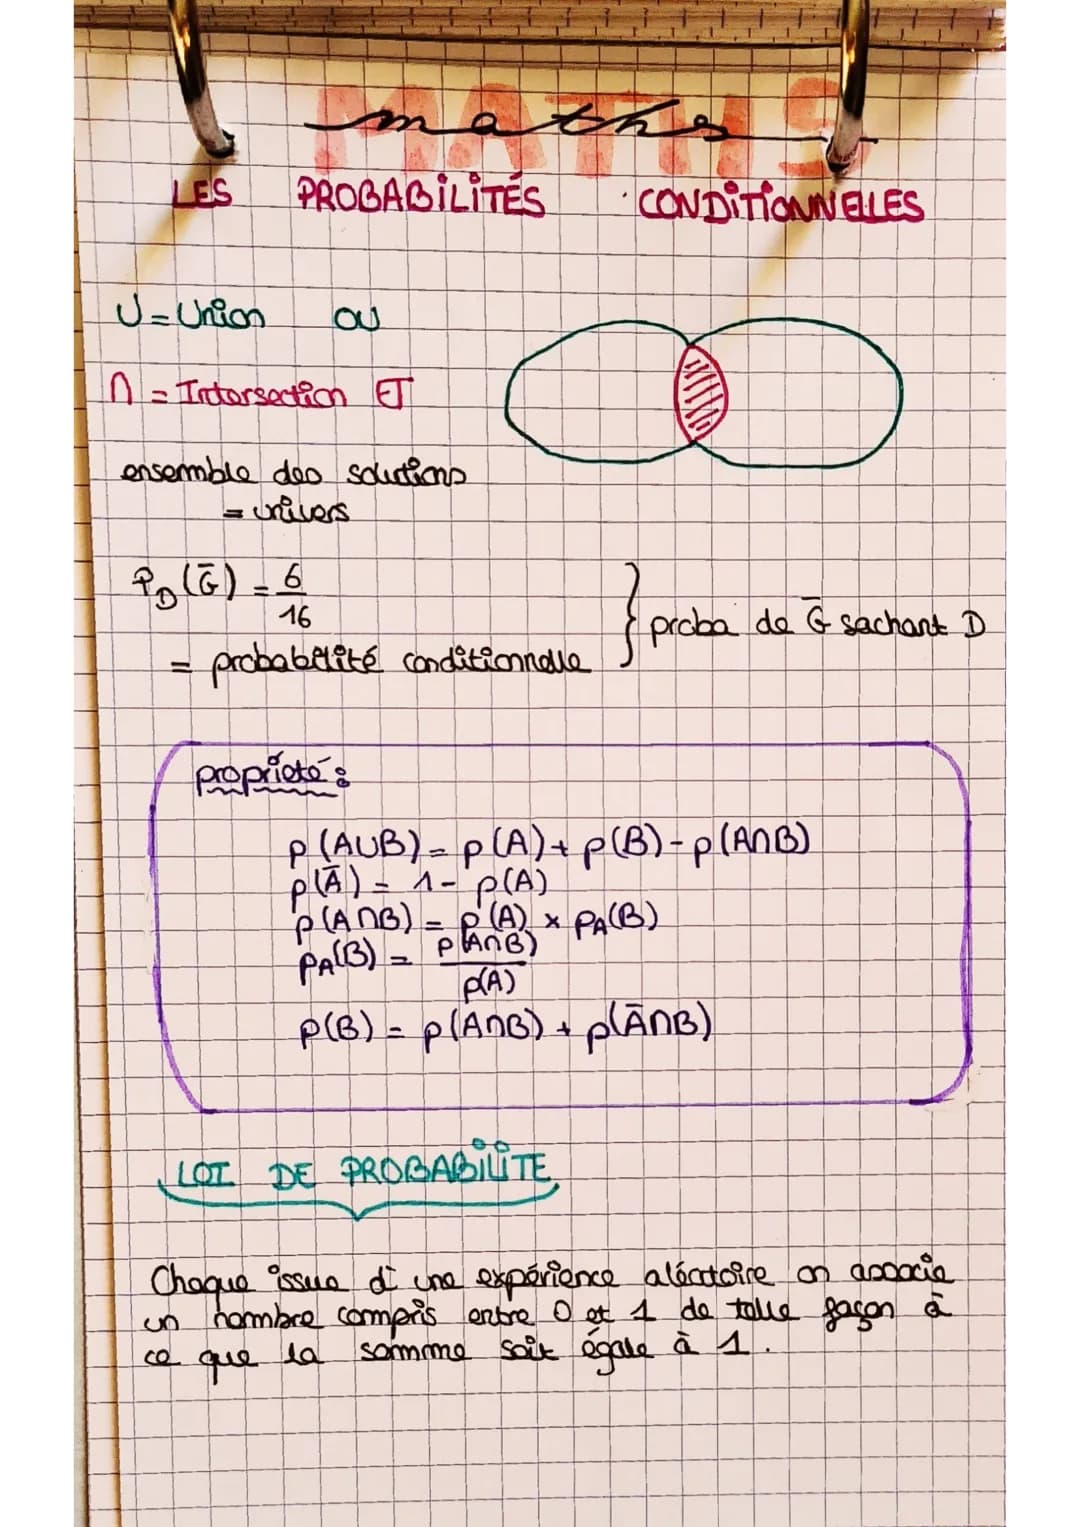 MATHS
maths
LES PROBABILITÉS CONDITIONNELLES
U = Union OU
∩ = Intersection ET
ensemble des solutions
= univers
P_D(Ḡ) = 6/16
= probabilité conditionnelle
} proba de Ḡ sachant D
propriété :
p(A∪B) = p(A) + p(B) - p(A∩B)
p(Ā) = 1 - p(A)
p(A∩B) = p(A) × p_A(B)
p_A(B) = p(A∩B)/p(A)
p(B) = p(A∩B) + p(Ā∩B)
LOI DE PROBABILITE
Chaque issue d'une expérience aléatoire on associe
un nombre compris entre 0 et 1 de telle façon à
ce que la somme soit égale à 1.